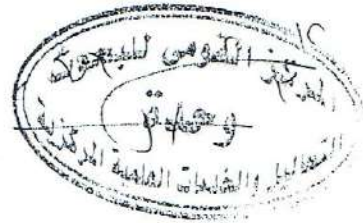 المركز القومى للبحوث
وحدة
التحاليل والخدمات العلمية المركزية